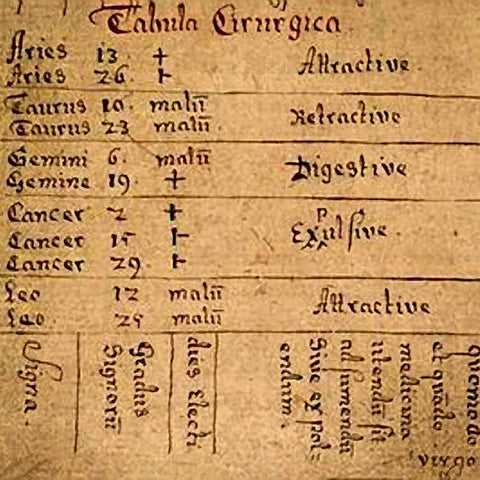 Tabula Cirurgica.
Aries 13. + Attractive.
Aries 26. +
Taurus 10. malū Retractive
Taurus 23 malū.
Gemini 6. malū Digestive
Gemine 19. +
Cancer 2 + Expulsive.
Cancer 15 +
Cancer 29. +
Leo 12 malū Attractive
Leo. 25 malū
Signa.
Gradus
Signorū
dies Electi
quomodo
et quādo
medicina
utendū sit
ad sumendū
Sive expol-
endum.
virgo